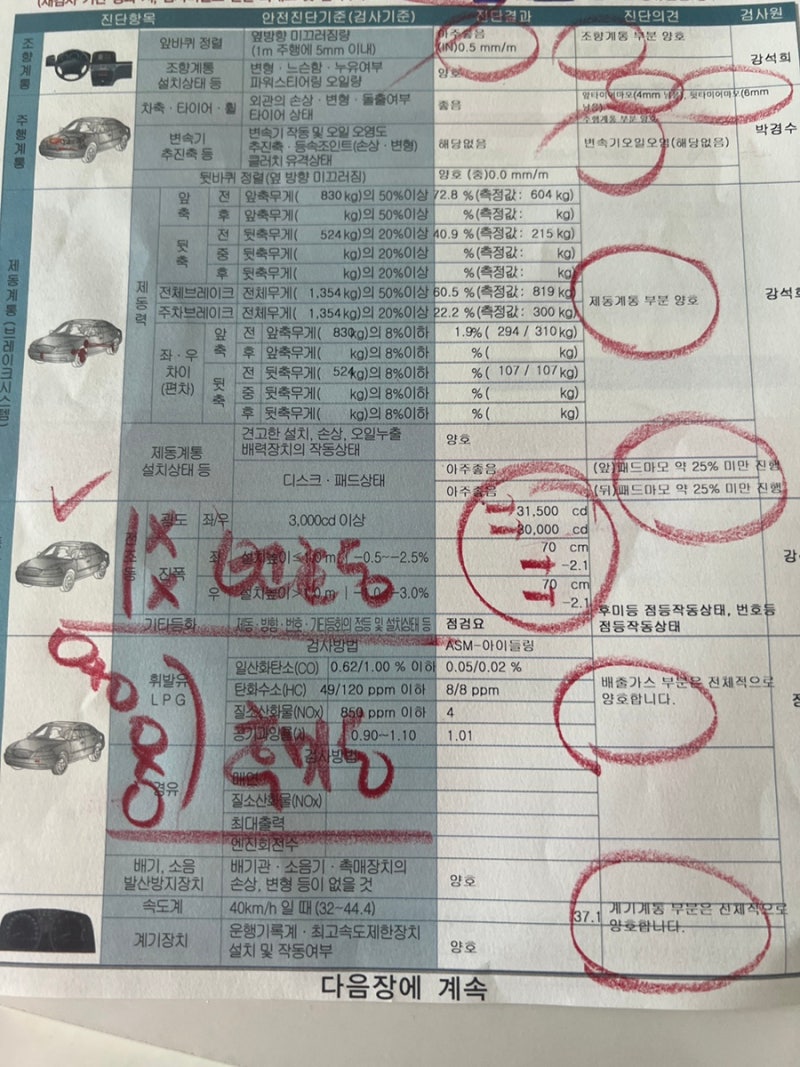 진단항목 안전진단기준(검사기준) 진단결과 진단의견 검사원
조향계통
앞바퀴 정렬 옆방향 미끄러짐량 아주좋음 조향계통 부분 양호 강석희
(1m 주행에 5mm 이내) (IN)0.5 mm/m
조향계통 변형·느슨함·누유여부 양호
설치상태 등 파워스티어링 오일량
주행계통
차축·타이어·휠 외관의 손상·변형·돌출여부 좋음 앞타이어마모(4mm 남음), 뒷타이어마모(6mm
타이어 상태 남음)
주행계통 부분 양호 박경수
변속기 변속기 작동 및 오일 오염도 해당없음 변속기오일오염(해당없음)
추진축 등 추진축·등속조인트(손상·변형)
클러치 유격상태
뒷바퀴 정렬(옆 방향 미끄러짐) 양호 (중)0.0 mm/m
제동계통(브레이크시스템)
제동력
앞축 전 앞축무게( 830 kg)의 50%이상 72.8 %(측정값: 604 kg)
후 앞축무게( kg)의 50%이상 %(측정값: kg)
뒷축 전 뒷축무게( 524 kg)의 20%이상 40.9 %(측정값: 215 kg)
중 뒷축무게( kg)의 20%이상 %(측정값: kg)
후 뒷축무게( kg)의 20%이상 %(측정값: kg)
전체브레이크 전체무게( 1,354 kg)의 50%이상 60.5 %(측정값: 819 kg) 제동계통 부분 양호 강석희
주차브레이크 전체무게( 1,354 kg)의 20%이상 22.2 %(측정값: 300 kg)
좌·우 차이 (편차)
앞축 전 앞축무게( 830 kg)의 8%이하 1.9%( 294 / 310 kg)
후 앞축무게( kg)의 8%이하 %( kg)
뒷축 전 뒷축무게( 524 kg)의 8%이하 %( 107 / 107 kg)
중 뒷축무게( kg)의 8%이하 %( kg)
후 뒷축무게( kg)의 8%이하 %( kg)
제동계통 견고한 설치, 손상, 오일누출 양호
설치상태 등 배력장치의 작동상태
디스크·패드상태 아주좋음 (앞)패드마모 약 25% 미만 진행
아주좋음 (뒤)패드마모 약 25% 미만 진행
광도 좌/우 3,000cd 이상 31,500 cd
30,000 cd
진폭 좌 설치높이≤1.0m -0.5~-2.5% 70 cm
-2.1
우 설치높이>1.0m -3.0% 70 cm
-2.1
기타등화 제동·방향·번호·기타등화의 점등 및 설치상태 등 점검요 후미등 점등작동상태, 번호등
점등작동상태
검사방법 ASM-아이들링
휘발유
LPG
일산화탄소(CO) 0.62/1.00 % 이하 0.05/0.02 % 배출가스 부분은 전체적으로
양호합니다.
탄화수소(HC) 49/120 ppm 이하 8/8 ppm
질소산화물(NOx) 850 ppm 이하 4
공기과잉률(λ) 0.90~1.10 1.01
경유
검사방법
매연
질소산화물(NOx)
최대출력
엔진회전수
배기, 소음 배기관·소음기·촉매장치의 양호
발산방지장치 손상, 변형 등이 없을 것
속도계 40km/h 일 때 (32~44.4) 37.1 계기계통 부분은 전체적으로
양호합니다.
계기장치 운행기록계·최고속도제한장치 양호
설치 및 작동여부
다음장에 계속